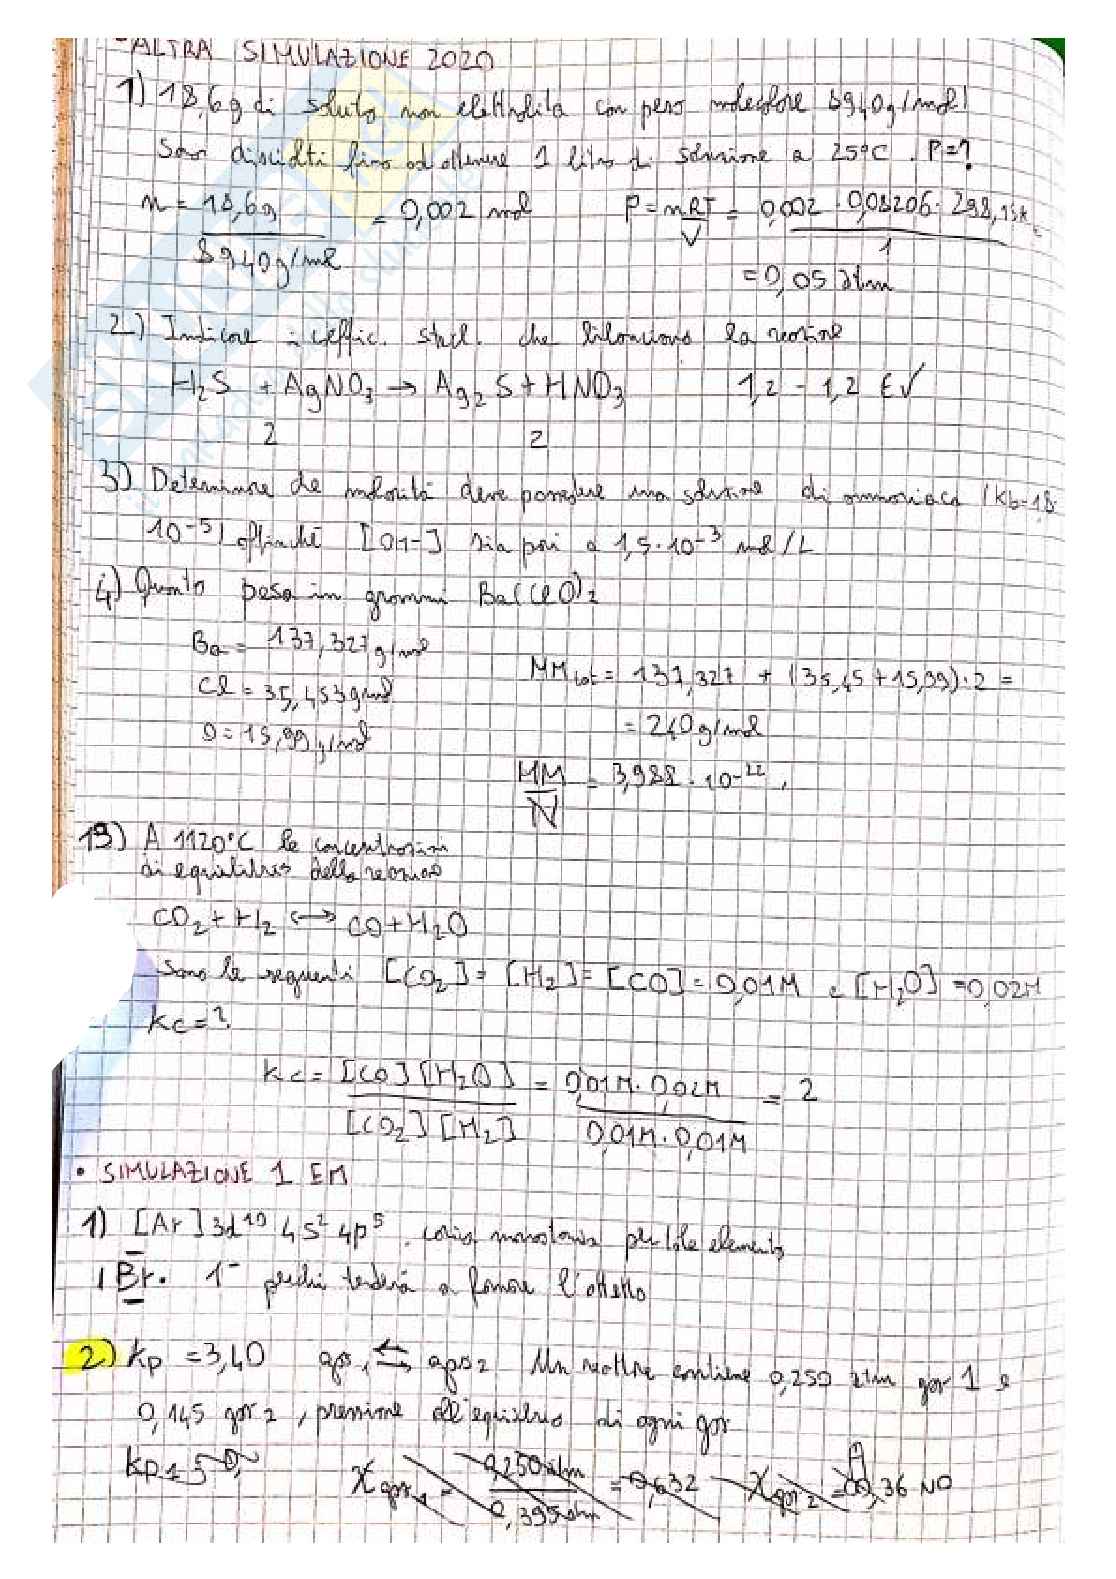 ALTRA SIMULAZIONE 2020
1) 18,6g di soluto non elettrolita con peso molecolare 8940g/mol
Son disciolti fino ad ottenere 1 litro di soluzione a 25°C. P=?
n = 18,6g / 8940g/mol = 0,002 mol P = nRT / V = 0,002 · 0,08206 · 298,15K / 1
= 0,05 atm
2) Indicare i coeffic. stech. che bilanciano la reazione
H2S + AgNO3 → Ag2S + HNO3 1,2 - 1,2 E✓
2 2
3) Determinare che molarità deve possedere una soluzione di ammoniaca (Kb=1,8
10⁻⁵) affinchè [OH-] sia pari a 1,5·10⁻³ mol/L
4) Quanto pesa in grammi Ba(ClO)2
Ba = 137,327g/mol
MMtot = 137,327 + (35,45+15,99)·2 =
Cl = 35,453g/mol
= 240g/mol
O = 15,99g/mol
MM / N = 3,988 · 10⁻²²
19) A 1120°C le concentrazioni
di equilibrio della reazione
CO2 + H2 ↔ CO + H2O
Sono le seguenti [CO2] = [H2] = [CO] = 0,01M e [H2O] = 0,02M
Kc = ?
Kc = [CO][H2O] / [CO2][H2] = 0,01M · 0,02M / 0,01M · 0,01M = 2
• SIMULAZIONE 1 EM
1) [Ar] 3d¹⁰ 4s² 4p⁵. carica per tale elemento
Br. 1⁻ perchè tenderà a formare l'ottetto
2) Kp = 3,40 gas1 ⇆ gas2 Un reattore contiene 0,250 atm gas 1 e
0,145 gas 2, pressione all'equilibrio di ogni gas
Kp = X gas1 = 0,250 atm / 0,395 atm = 0,632 X gas2 = 0,36 NO